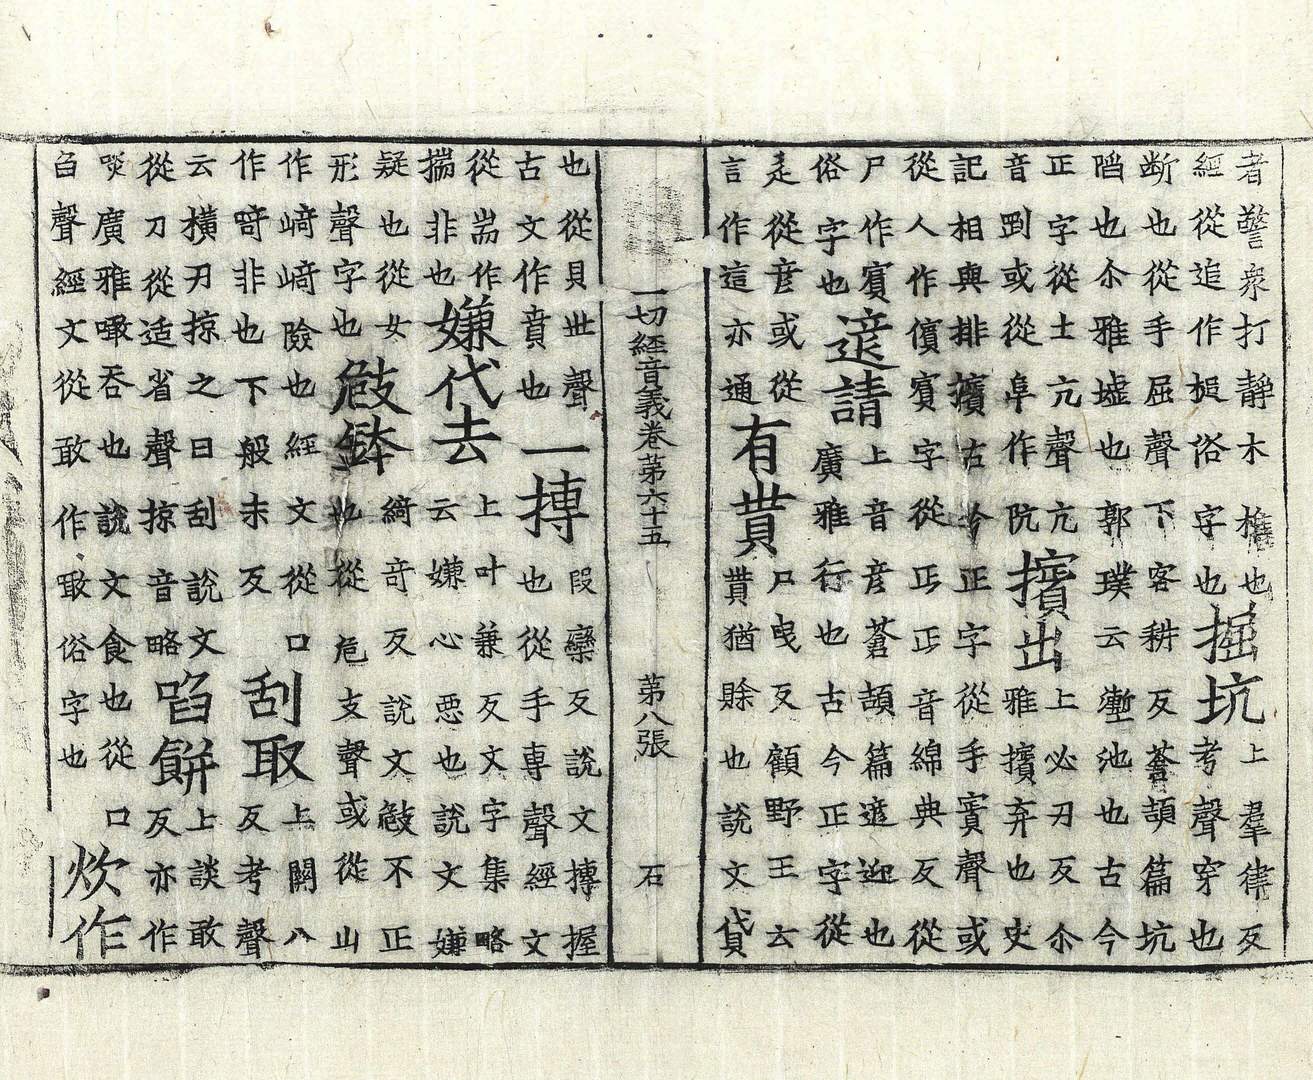 者警衆打靜木摧也經從追作槌俗字也掘坑上羣律反考聲穿也
断也從手屈聲下客耕反蒼頡篇坑陷也尒雅墟也郭璞云壍池也古今
正字從土亢聲亢音剄或從阜作阬擯出上必刃反尒雅擯弃也史
記相與排擯古今正字從手賓聲或從人作儐賓字從丏丏音綿典反從
尸作賔俗字也遃請上音彦蒼頡篇遃迎也廣雅行也古今正字從
辵從彦或從言作這亦通有貰尸曳反顧野王云貰猶賒也說文貸
一切經音義卷第六十五 第八張 石
也從貝丗聲古文作貰也一摶段欒反說文摶握也從手專聲經文
從耑作揣非也嫌代去上叶兼反文字集略云嫌心惡也說文嫌
疑也從女形聲字也攱鉢綺奇反說文攱不正也從危支聲或從山
作崎崎險也經文從口作㗨非也下般末反刮取上關八反考聲
云橫刃掠之曰刮說文從刀從𠯑省聲掠音略啗餅上談敢反亦作
啖廣雅噉吞也說文食也從口臽聲經文從敢作噉俗字也炊作